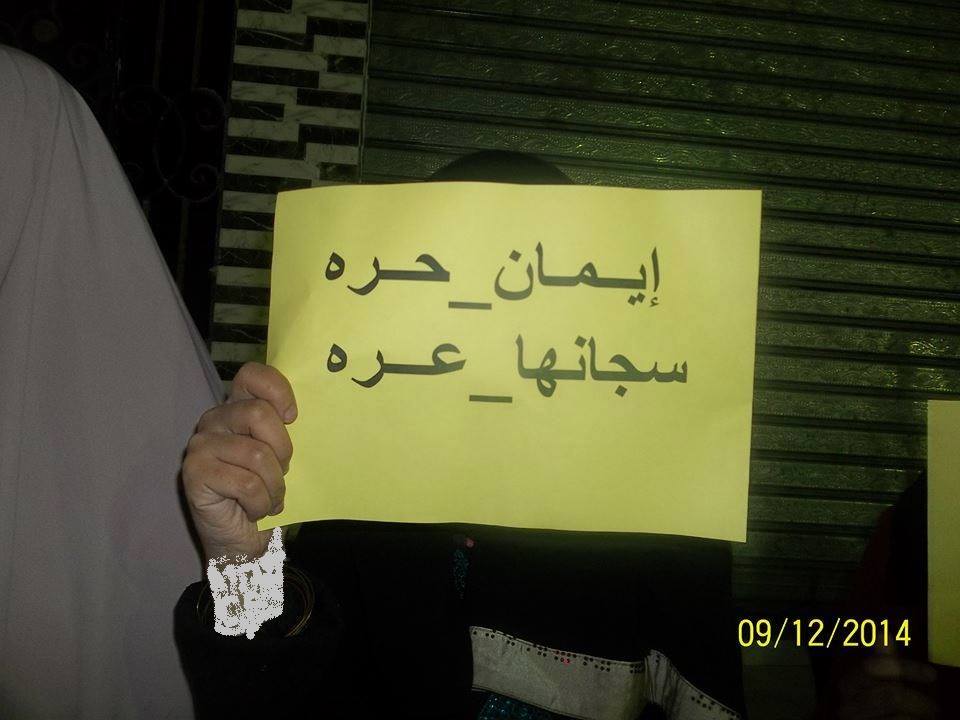 إيمان_حره
سجانها_عره
09/12/2014